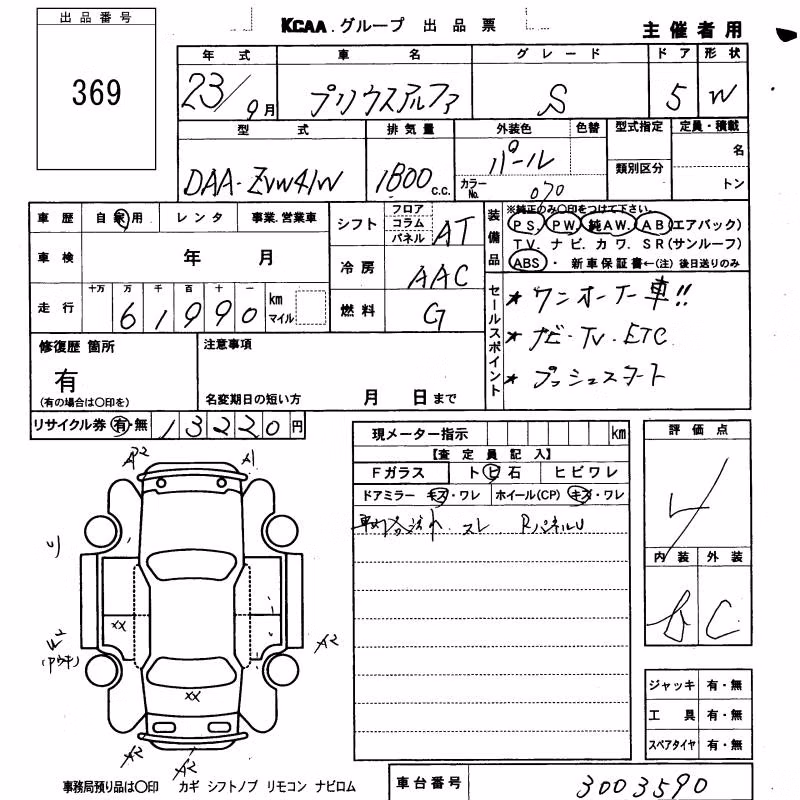 出品番号
369
KCAA.グループ 出品票
主催者用
年式 車名 グレード ドア 形状
23/9月 プリウスアルファ S 5 W
型式 排気量 外装色 色替 型式指定 定員・積載
DAA-ZVW41W 1800c.c. パール カラーNo. 070 類別区分 名
トン
車歴 自家用 レンタ 事業.営業車
シフト フロア コラム パネル AT
装備品 ※純正のみ〇印をつけて下さい。
PS. PW. 純AW. AB(エアバック)
TV. ナビ. カワ. SR(サンルーフ)
ABS・新車保証書←(注)後日送りのみ
車検 年 月
冷房 AAC
走行 十万 万 千 百 十 一
61990 km マイル
燃料 G
セールスポイント
★ワンオーナー車!!
★ナビ・TV.ETC
★プッシュスタート
修復歴 箇所
有
(有の場合は〇印を)
注意事項
名変期日の短い方 月 日まで
リサイクル券 有・無 13220円
現メーター指示 km
【査定員記入】
Fガラス トビ石 ヒビワレ
ドアミラー キズ・ワレ ホイール(CP) キズ・ワレ
スレ RパネルU
評価点
4
内装 外装
b C
A2 A1
XX
A2
XX
A2 A2
ジャッキ 有・無
工具 有・無
スペアタイヤ 有・無
事務局預り品は〇印 カギ シフトノブ リモコン ナビロム
車台番号 3003590